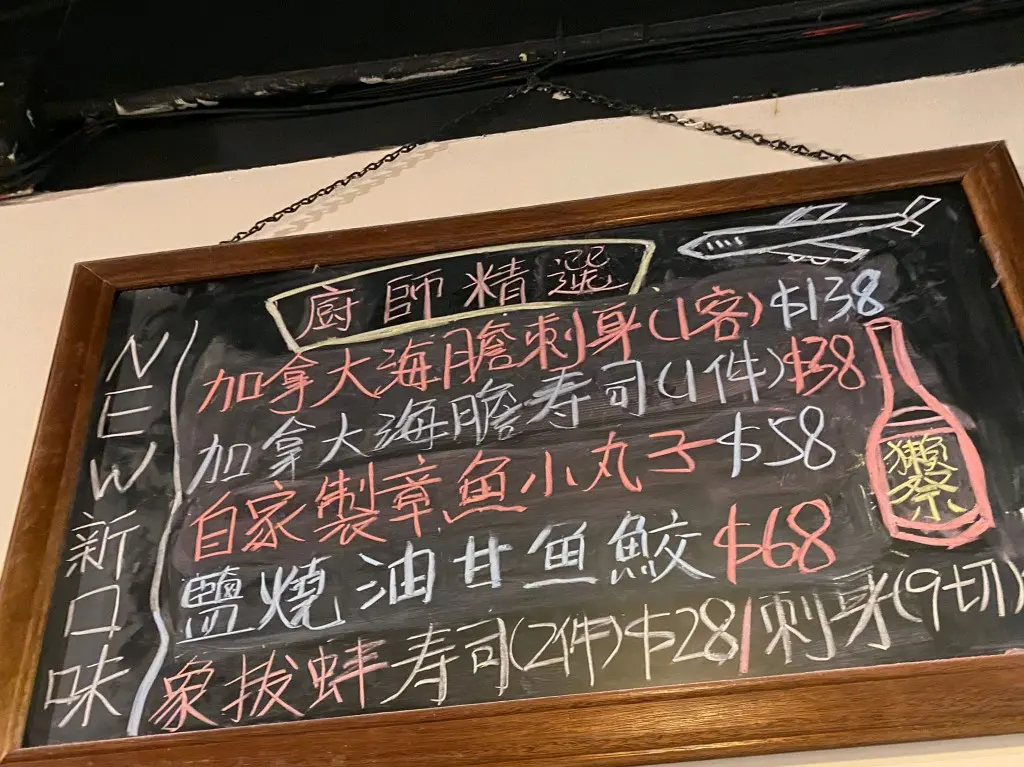 廚師精選
NEW新口味
加拿大海膽刺身(1客)$138
加拿大海膽寿司(1件)$38
自家製章魚小丸子$58
鹽燒油甘魚鮫$68
象拔蚌寿司(2件)$28/刺身(9切)
獺祭